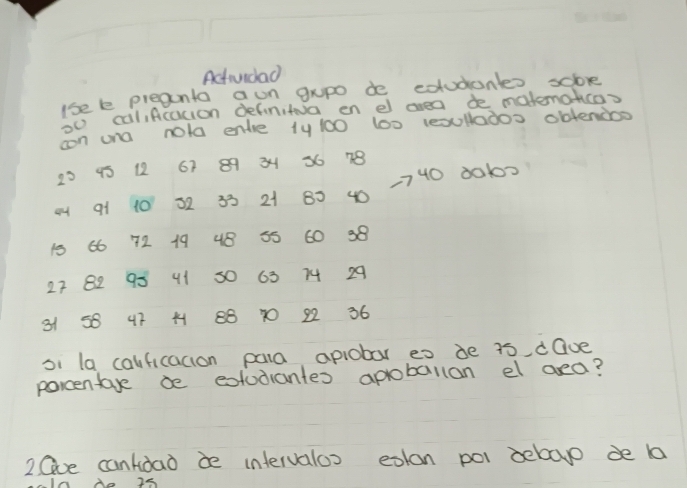 Actividad
1 Se le pregunta a un grupo de estudiantes sobre
su calificacion definitiva en el area de matematicas
con una nota entre 1 y 100 los resultados obtenidos
23 45 12 67 89 34 56 78
91 10 32 33 21 85 40
→ 40 datos
15 66 72 19 48 55 60 38
27 82 95 41 50 63 74 29
31 58 47 88 70 22 36
si la calificacion para aprobar es de 75 ¿Que
porcentaje de estudiantes aprobarian el area?
2. Que cantidad de intervalos estan por debajo de la
de 75